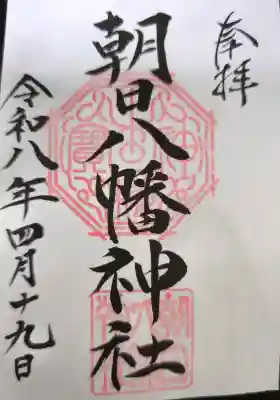 奉拝
朝日八幡神社
令和八年四月十九日